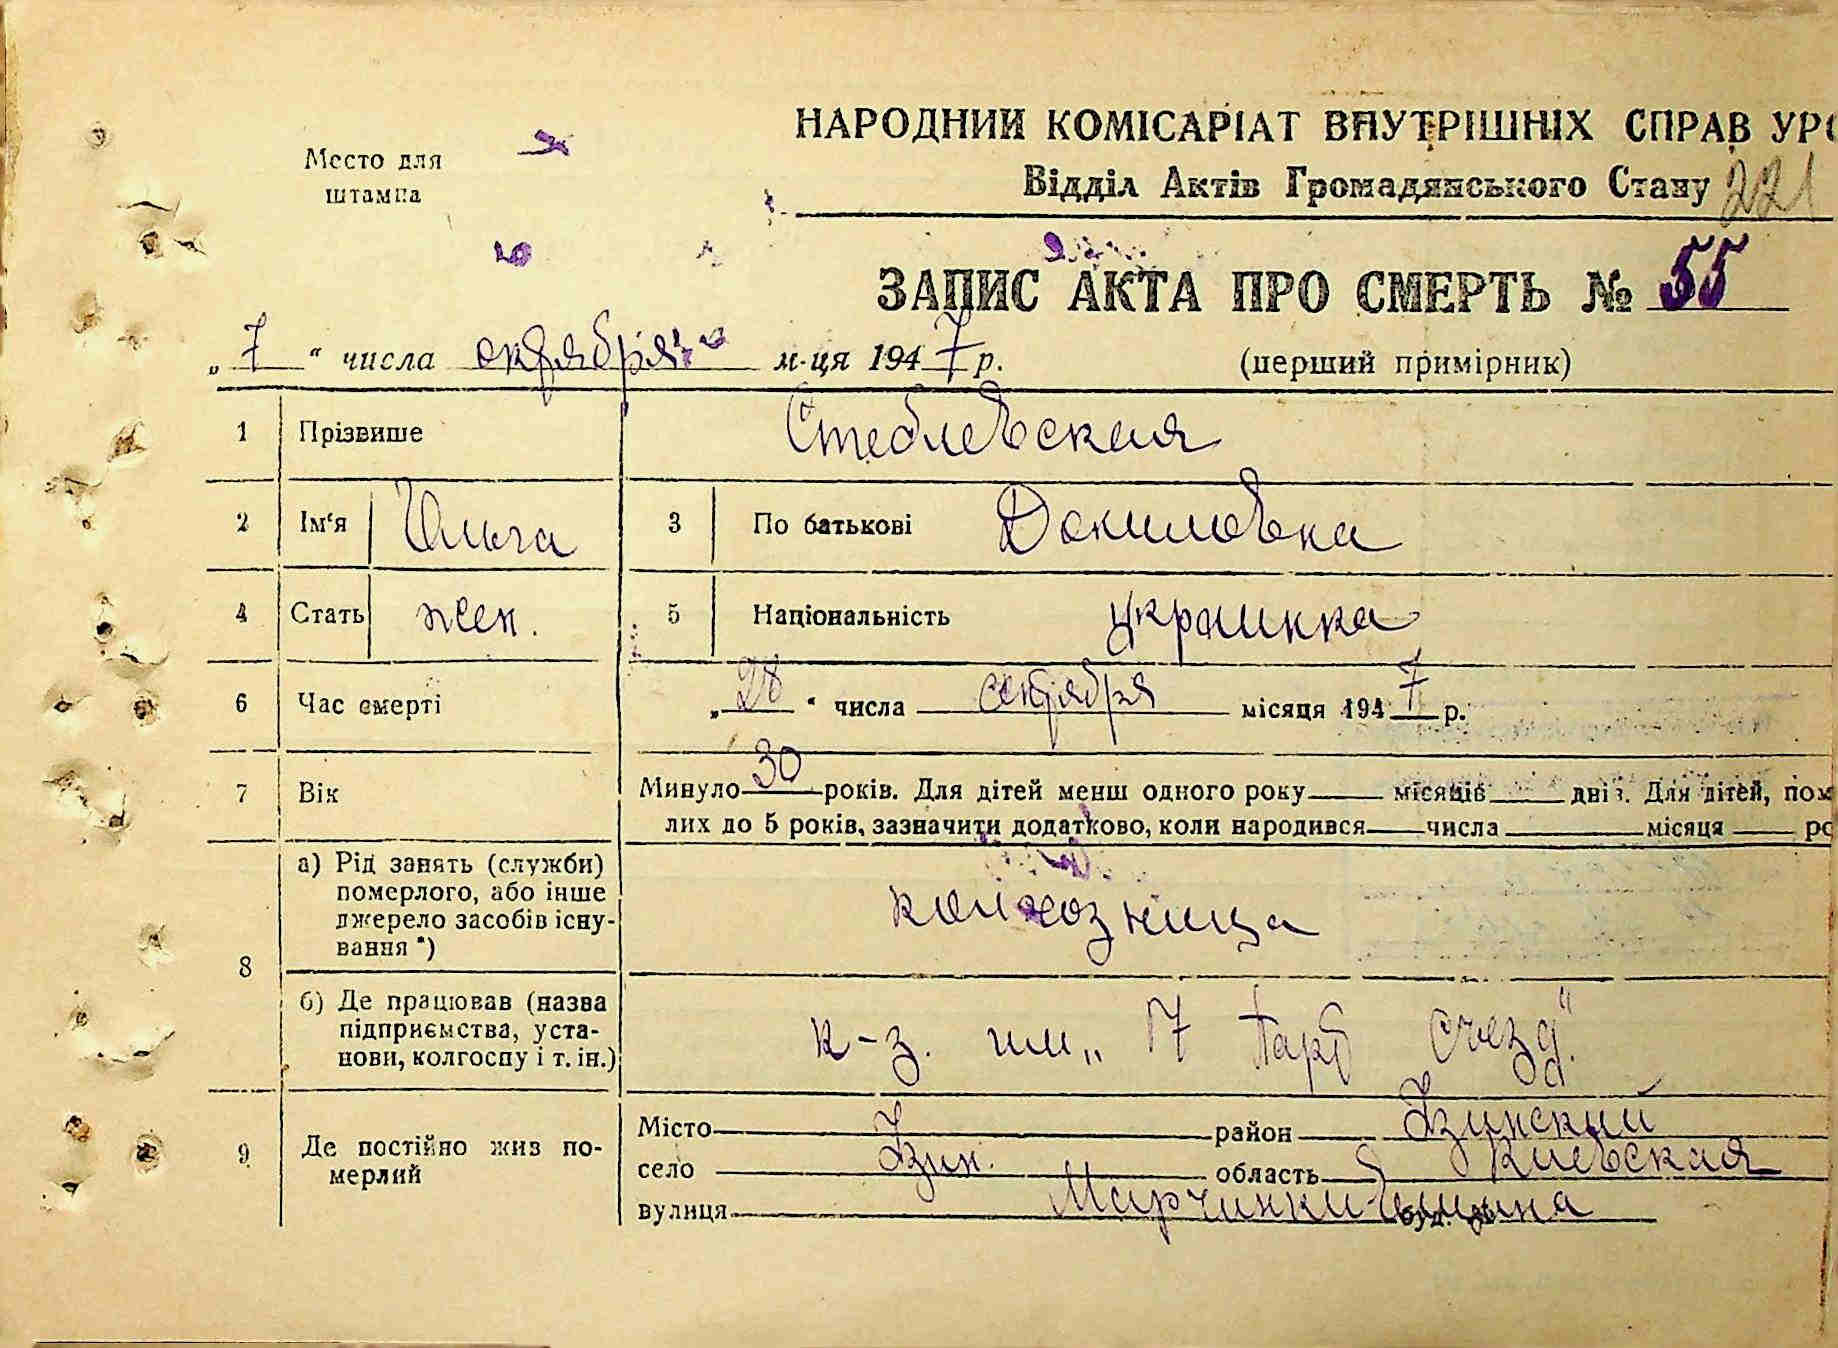 Место для
штампа
НАРОДНИЙ КОМІСАРІАТ ВНУТРІШНІХ СПРАВ УРС
Відділ Актів Громадянського Стану 221
ЗАПИС АКТА ПРО СМЕРТЬ № 55
„7“ числа октября м-ця 1947 р. (перший примірник)
1 Прізвише Стеблевская
2 Ім‘я Ольга 3 По батькові
4 Стать жен. 5 Національність украинка
6 Час смерті „28“ числа сентября місяця 1947 р.
7 Вік Минуло 30 років. Для дітей менш одного року місяців днів. Для дітей, пом
лих до 5 років, зазначити додатково, коли народився числа місяця ро
8 а) Рід занять (служби)
померлого, або інше
джерело засобів існу-
вання *)
колхозница
б) Де працював (назва
підприємства, уста-
нови, колгоспу і т. ін.)
к-з. им „17 Парт Съезд“
9 Де постійно жив по-
мерлий
Місто район Узинский
село Узин. область Киевская
вулиця